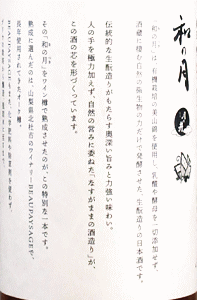 和の月
「和の月」は有機栽培の美山錦を使用し、乳酸や酵母を一切添加せず、
酒蔵に棲む自然の微生物の力だけで発酵させた、生酛造りの日本酒です。
伝統的な生酛造りがもたらす奥深い旨みと力強い味わい。
人の手を極力加えず、自然の営みに委ねた「なすがままの酒造り」が、
この酒の芯を形づくっています。
その「和の月」をワイン樽で熟成させたのが、この特別な一本です。
熟成に選んだのは、山梨県北杜市のワイナリーBEAU PAYSAGEで、
長年使用されてきたオーク樽。